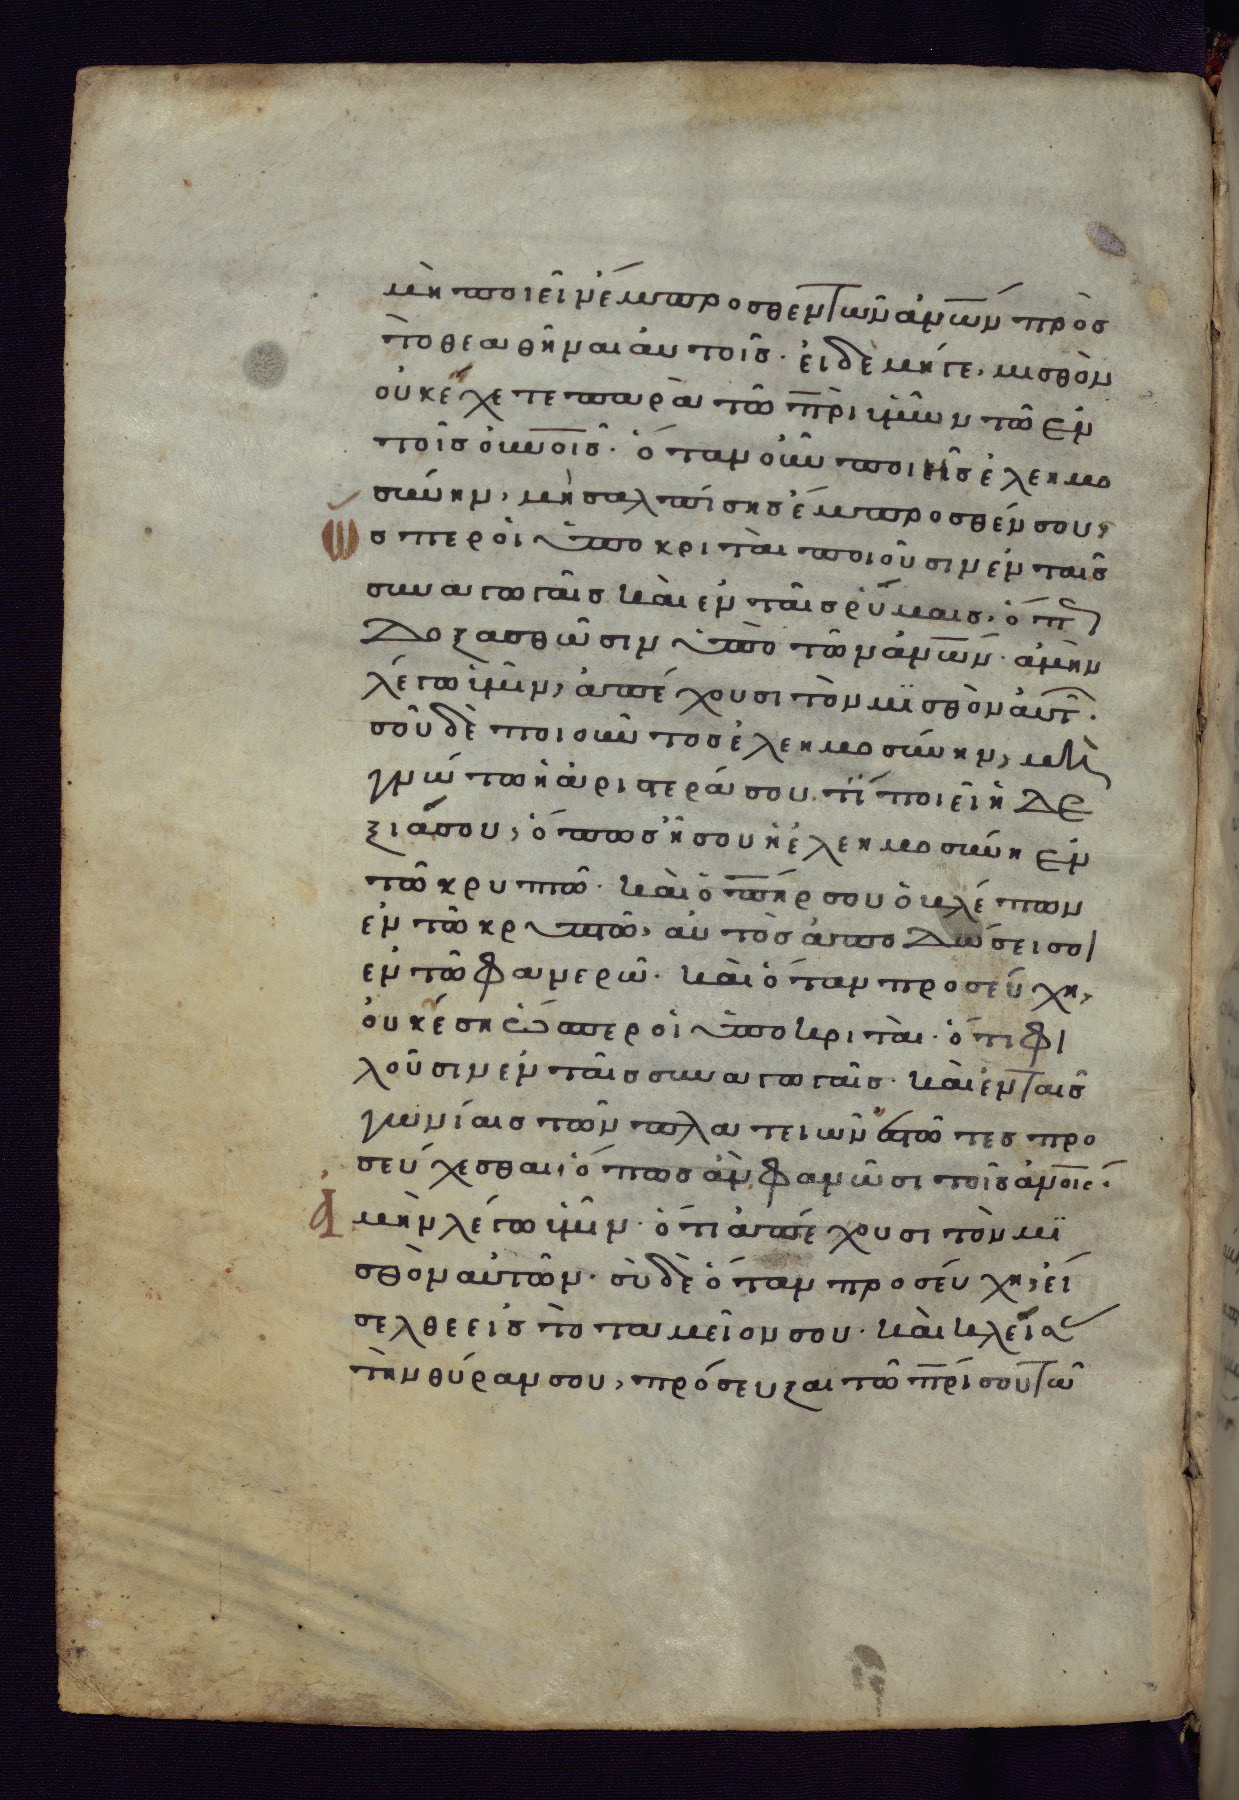 μὴ ποιεῖν ἔμπροσθεν τῶν ἀν̅ω̅ν πρὸς
τὸ θεαθῆναι αὐτοῖς· εἰ δὲ μήγε, μισθὸν
οὐκ ἔχετε παρὰ τῶ π̅ρι ὑμῶν τῶ ἐν
τοῖς οὐν̅οις· ὅταν οὖν ποιῆς ἐλεημο
σύνην, μὴ σαλπίσης ἔμπροσθέν σου,
ὥσπερ οἱ ὑποκριταὶ ποιοῦσιν ἐν ταῖς
συναγωγαῖς καὶ ἐν ταῖς ῥύμαις, ὅπ
δοξασθῶσιν ὑπὸ τῶν ἀν̅ω̅ν· ἀμὴν
λέγω ὑμῖν, ἀπέχουσι τὸν μϊσθὸν αὐτ·
σοῦ δὲ ποιοῦντος ἐλεημοσύνην, μὴ
γνώτω ἡ ἀριστερά σου τί ποιεῖ ἡ δε
ξιά σου, ὅπως ἦ σου ἡ ἐλεημοσύνη ἐν
τῶ κρυπτῶ· καὶ ὁ π̅ηρ σου ὁ βλέπων
ἐν τῶ κρυπτῶ, αὐτὸς ἀποδώσει σοι
ἐν τῶ φανερῶ· καὶ ὅταν προσεύχη,
οὐκ έση ὥσπερ οἱ ὑποκριταὶ· ὅτι φι
λοῦσιν ἐν ταῖς συναγωγαῖς· καὶ ἐν ταῖς
γωνίαις τῶν πλατειῶν ἑστῶτες προ
σεύχεσθαι, ὅπως ἂν φανῶσι τοῖς ἀν̅οις·
ἀμὴν λέγω ὑμῖν· ὅτι ἀπέχουσι τὸν μϊ
σθὸν αὐτῶν· σὺ δὲ ὅταν προσεύχη, εἴ
σελθε εἰς τὸ ταμεῖον σου· καὶ κλείσας
τὴν θύραν σου, πρόσευξαι τῶ π̅ρι σου τῶ